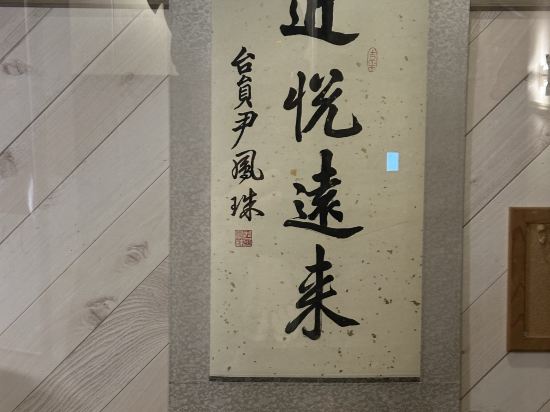 近悦遠来
台員尹鳳珠